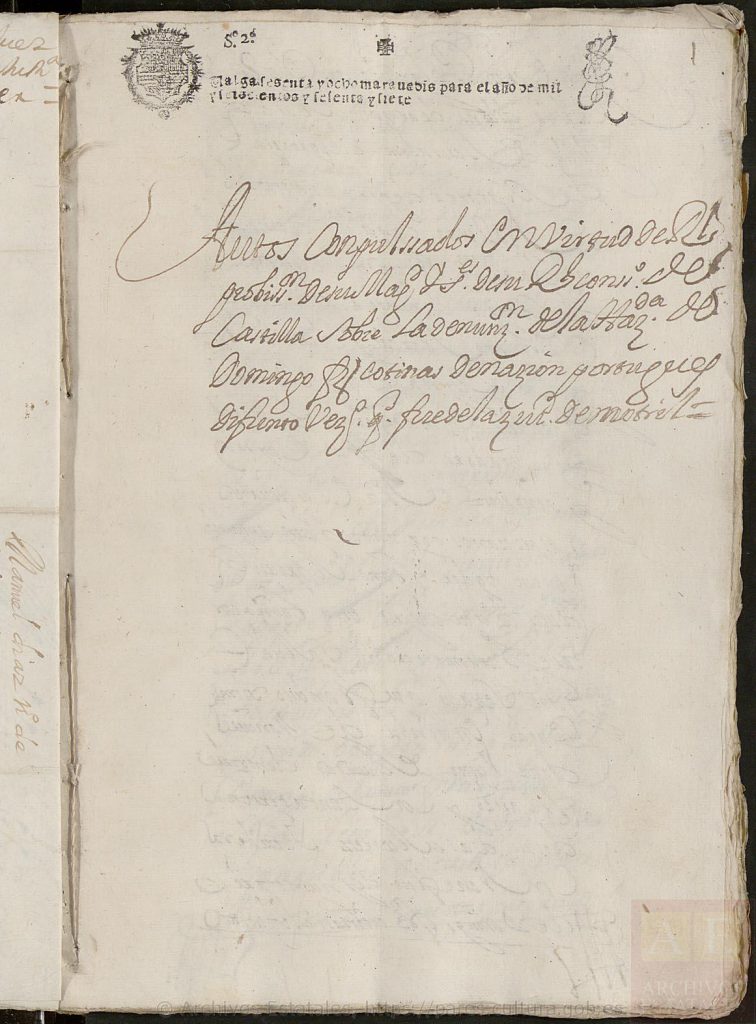 Sº. 2º.
1
Valga sesenta y ocho maravedis para el año de mil
y seiscientos y sesenta y siete
Autos Conpulssados En Virtud de Rl
probissn. de su Magd. y Ses. de su Rl conso. de
Castilla Sobre La denunzn. de la Hazda. de
Domingo cotinas de nazion portugues
difunto Vezº. q. fue de la ziud. de motril =
Manuel diaz
© Archivos Estatales, https://pares.cultura.gob.es
ARCHIVOS
ESTATALES